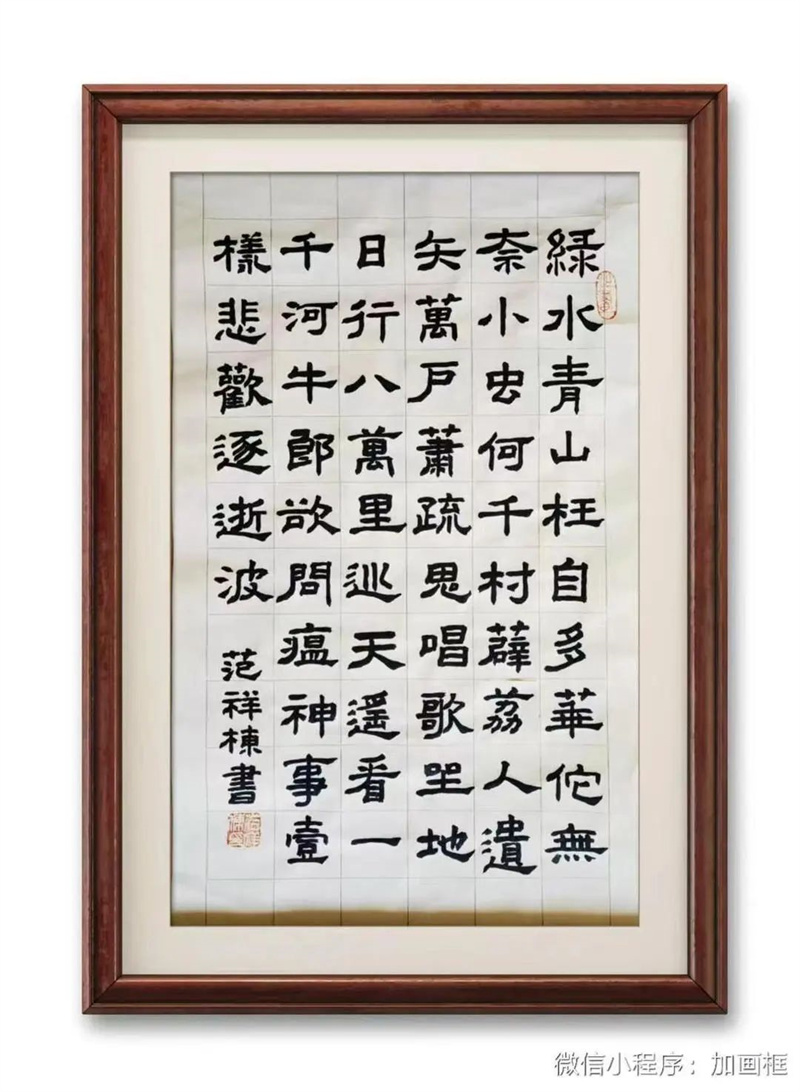 緑水青山枉自多華佗無
奈小虫何千村薜荔人遺
矢萬戶蕭疏鬼唱歌坐地
日行八萬里巡天遥看一
千河牛郎欲問瘟神事壹
樣悲歡逐逝波
范祥棟書
微信小程序：加画框